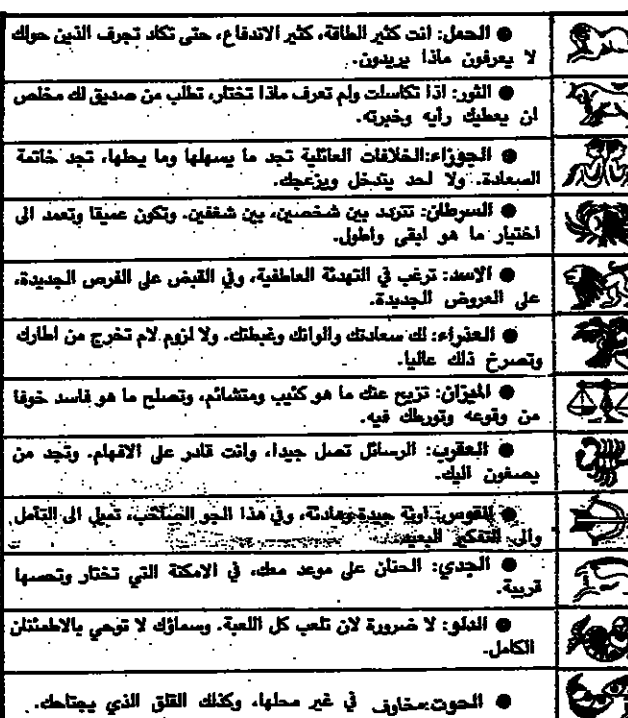 ● الحمل: انت كثير الطاقة، كثير الاندفاع، حتى تكاد تجرف الذين حولك
لا يعرفون ماذا يريدون.
● الثور: اذا تكاسلت ولم تعرف ماذا تختار، تطلب من صديق لك مخلص
ان يعطيك رأيه وخبرته.
● الجوزاء: الخلافات العائلية تجد ما يسهلها وما يحلها، تجد خاتمة
السعادة. ولا احد يتدخل ويزعجك.
● السرطان: تتردد بين شخصين، بين شغفين. وتكون عميقا وتعمد الى
اختيار ما هو ابقى واطول.
● الاسد: ترغب في التهدئة العاطفية، وفي القبض على الفرص الجديدة،
على العروض الجديدة.
● العذراء: لك سعادتك والوانك وغبطتك. ولا لزوم لام تخرج من اطارك
وتصرخ ذلك عاليا.
● الميزان: تزيح عنك ما هو كئيب ومتشائم، وتصلح ما هو فاسد خوفا
من وقوعه وتورطك فيه.
● العقرب: الرسائل تصل جيدا، وانت قادر على الافهام. وتجد من
يصغون اليك.
● القوس: اوقة جيدة وهادئة، وفي هذا الجو الصاخب، تميل الى التأمل
والى التفكير البعيد.
● الجدي: الحنان على موعد معك، في الامكنة التي تختار وتحسها
قريبة.
● الدلو: لا ضرورة لان تلعب كل اللعبة. وسماؤك لا توحي بالاطمئنان
الكامل.
● الحوت: مخاوف في غير محلها، وكذلك القلق الذي يجتاحك.